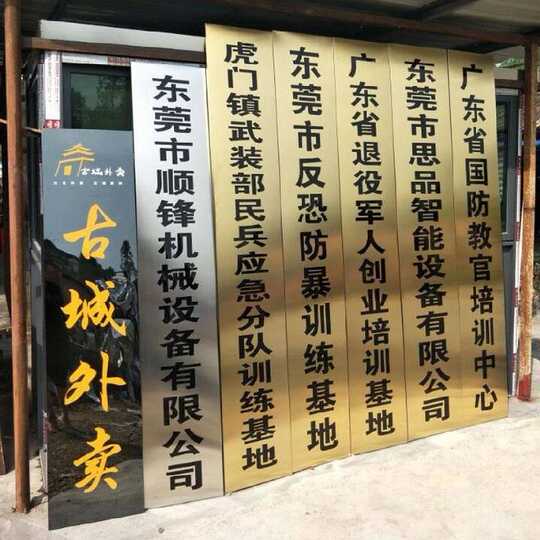 古城外卖
古城外卖
东莞市顺锋机械设备有限公司
虎门镇武装部民兵应急分队训练基地
东莞市反恐防暴训练基地
广东省退役军人创业培训基地
东莞市思品智能设备有限公司
广东省国防教官培训中心